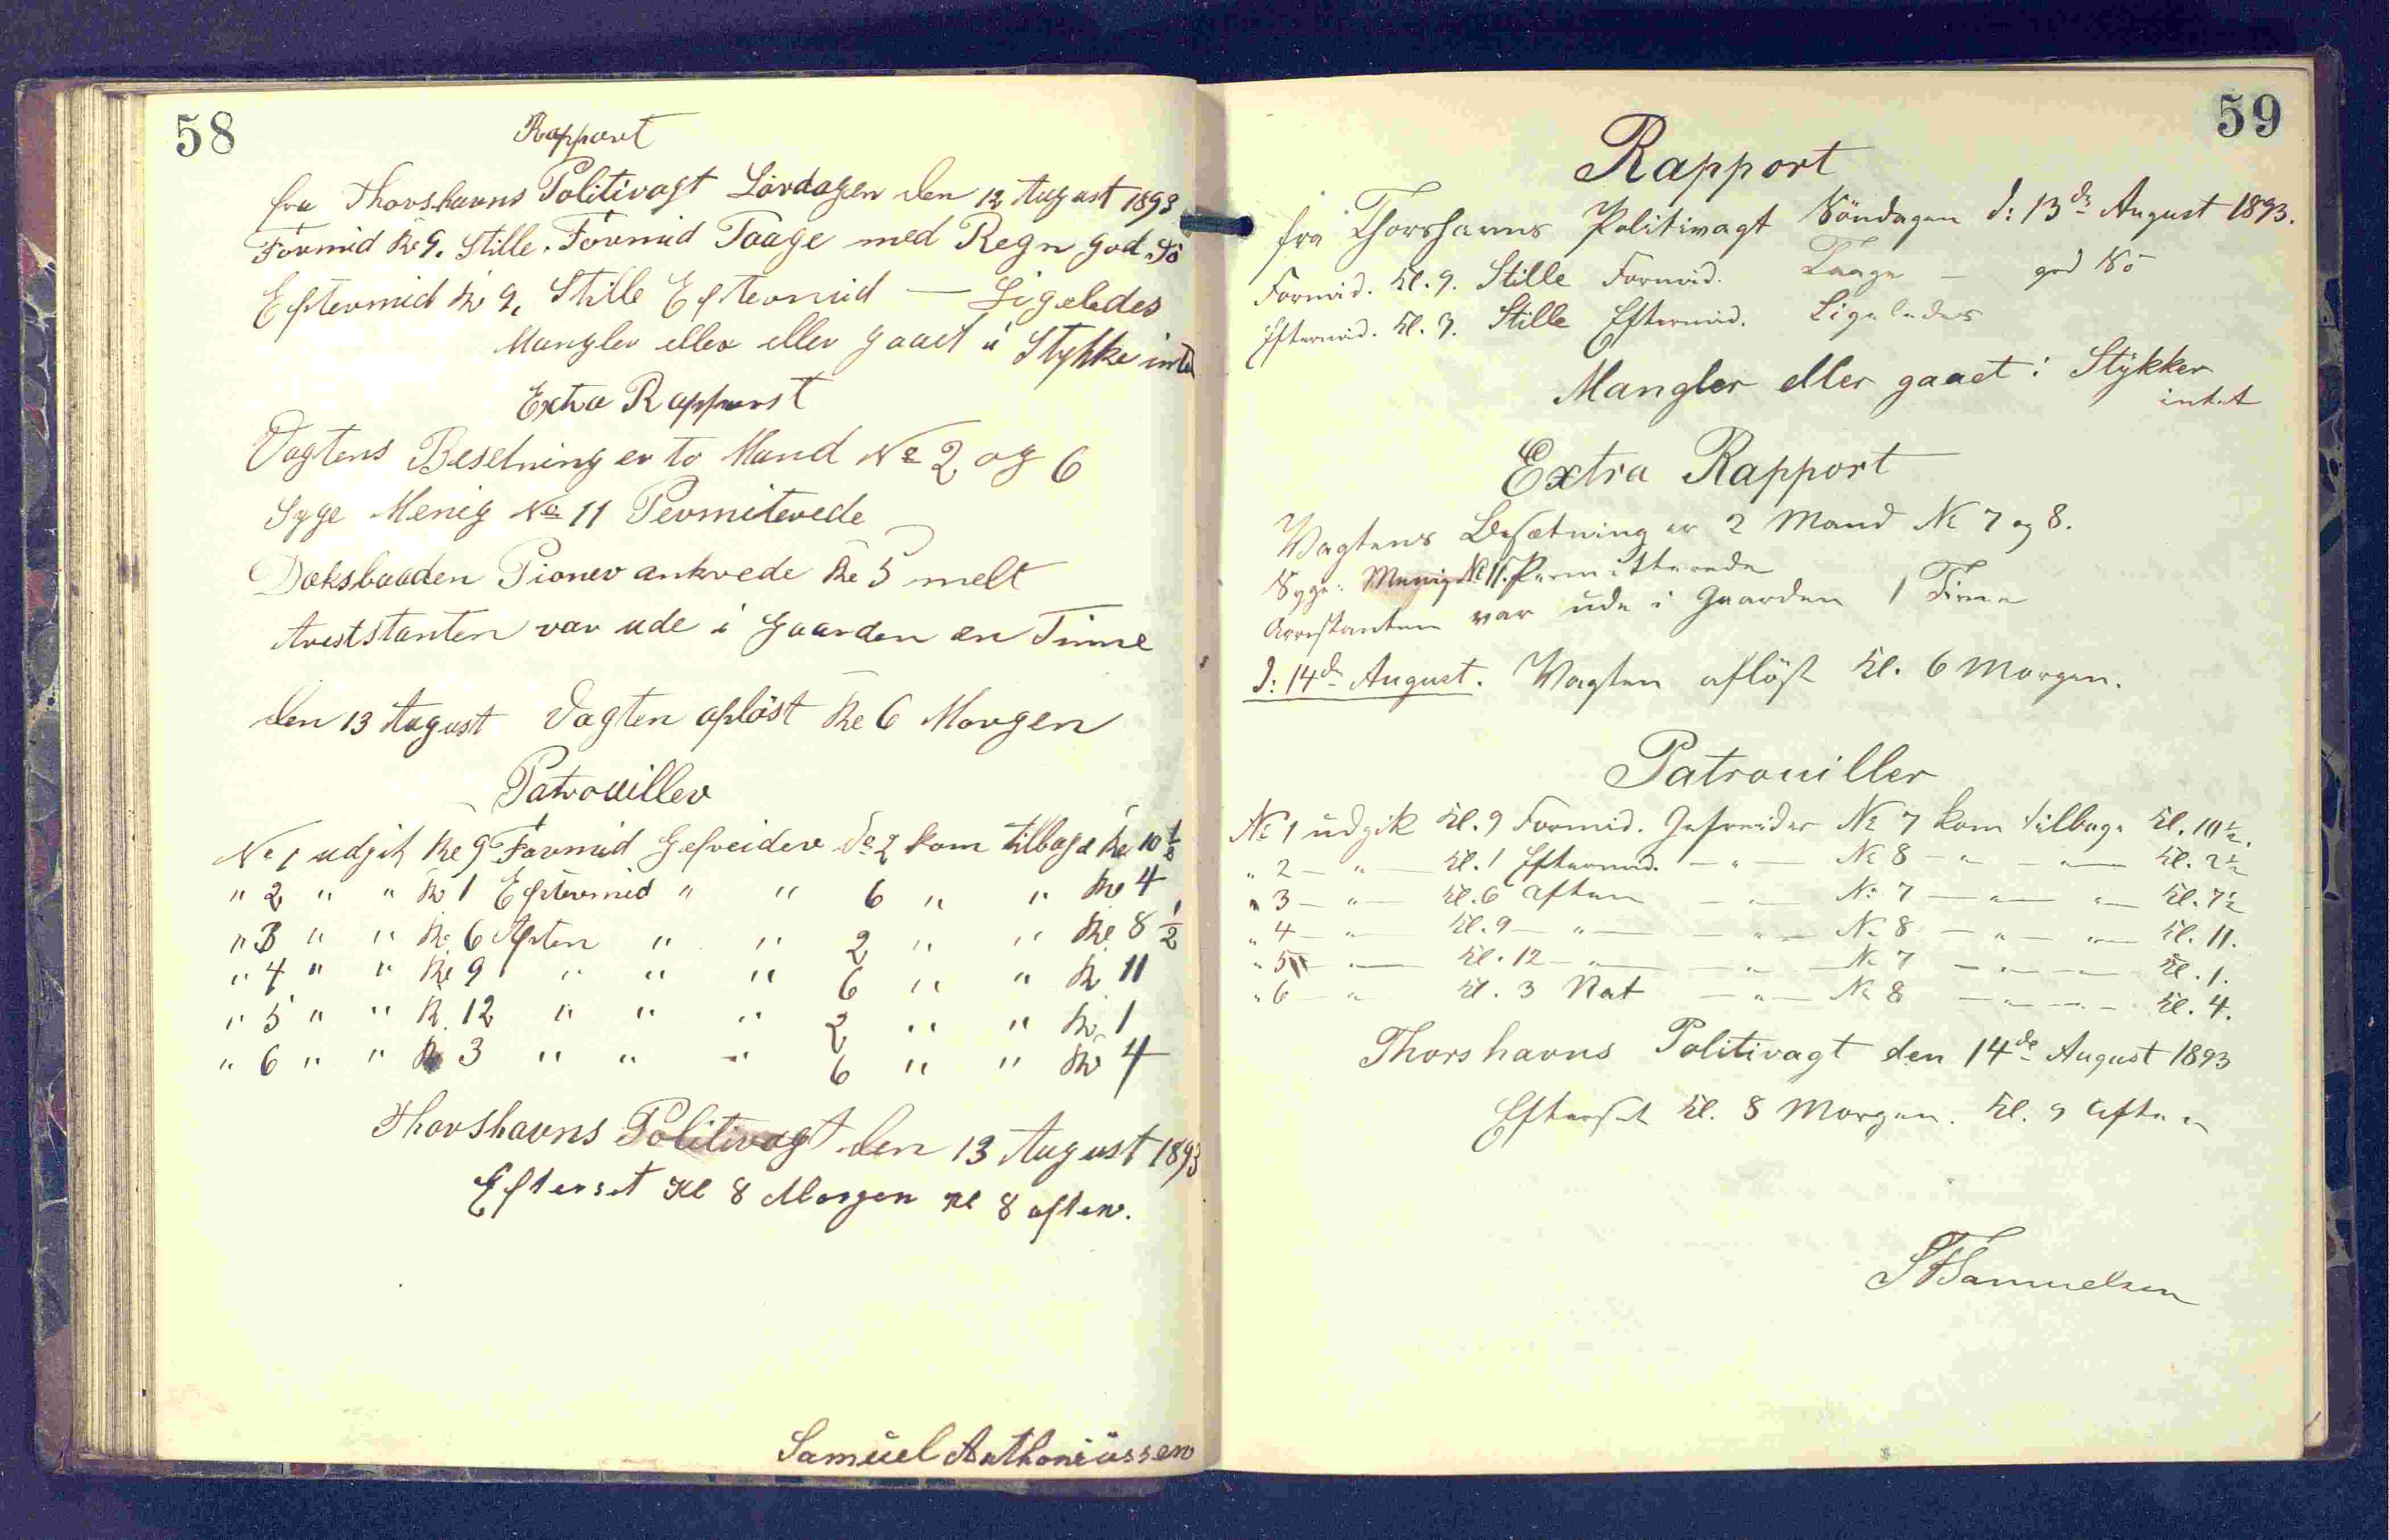 58
Rapport
fra Thorshavns Politivagt Lördagen den 12 August 1893
Formid Kl 9. Stille. Formid Taage med Regn god Sö
Eftermid Kl 9, Stille Eftermid — Ligeledes
Mangler eller eller gaaet i Stykke intet
Extra Rapport
Vagtens Besetning er to Mand No 2 og 6
Syge Menig No 11 Permiterede
Doksbaaden Pioner ankrede Kl 5 melt
Areststanten var ude i Gaarden en Time
den 13 August Vagten aflöst Kl 6 Morgen
Patrouiller
No 1 udgik Kl 9 Formid Gefreider No 2 kom tilbage Kl 10 1/2
" 2 " " Kl 1 Eftermid " " 6 " " Kl 4
" 3 " " Kl. 6 Aften " " 2 " " Kl 8 1/2
" 4 " " Kl 9 " " " 6 " " Kl 11
" 5 " " Kl. 12 " " " 2 " " Kl. 1
" 6 " " Kl 3 " " " 6 " " Kl 4
Thorshavns Politivagt den 13 August 1893
Efterset Kl 8 Morgen Kl 8 aften.
Samuel Anthoniussen
59
Rapport
fra Thorshavns Politivagt Söndagen d: 13de August 1893.
Formid. Kl. 9. Stille Formid. Taage — god Sö
Eftermid. Kl. 3. Stille Eftermid. Ligeledes
Mangler eller gaaet i Stykker
intet
Extra Rapport
Vagtens Besætning er 2 Mand No 7 og 8.
Syge: Menig No 11. Permitterede
Arrestanten var ude i Gaarden 1 Time
d: 14de August. Vagten aflöst Kl. 6 Morgen.
Patrouiller
No 1 udgik Kl. 9 Formid. Gefreider No 7 kom tilbage Kl. 10 1/2.
" 2 — " — Kl. 1 Eftermid. — " — No 8 — " — " — Kl. 2 1/2
" 3 — " — Kl. 6 Aften — " — No 7 — " — " — Kl. 7 1/2
" 4 — " — Kl. 9 — " — — " — No 8 — " — " — Kl. 11.
" 5 — " — Kl. 12 — " — — " — No 7 — " — " — Kl. 1.
" 6 — " — Kl. 3 Nat — " — No 8 — " — " — Kl. 4.
Thorshavns Politivagt den 14de August 1893
Efterset Kl. 8 Morgen. Kl. 9 Aften
Samuelsen